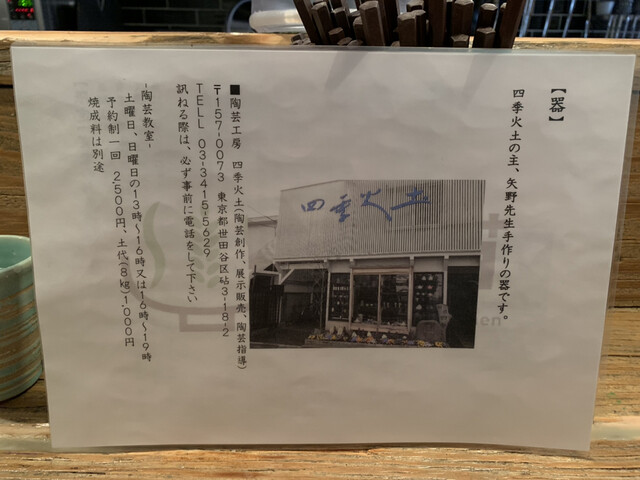 【器】
四季火土の主、矢野先生手作りの器です。
四季火土
■陶芸工房　四季火土(陶芸創作、展示販売、陶芸指導)
〒157-0073　東京都世田谷区砧3-18-2
TELL　03-3415-5629
訊ねる際は、必ず事前に電話をして下さい
-陶芸教室-
土曜日、日曜日の13時～16時又は16時～19時
予約制一回　2,500円、土代(8kg)1,000円
焼成料は別途